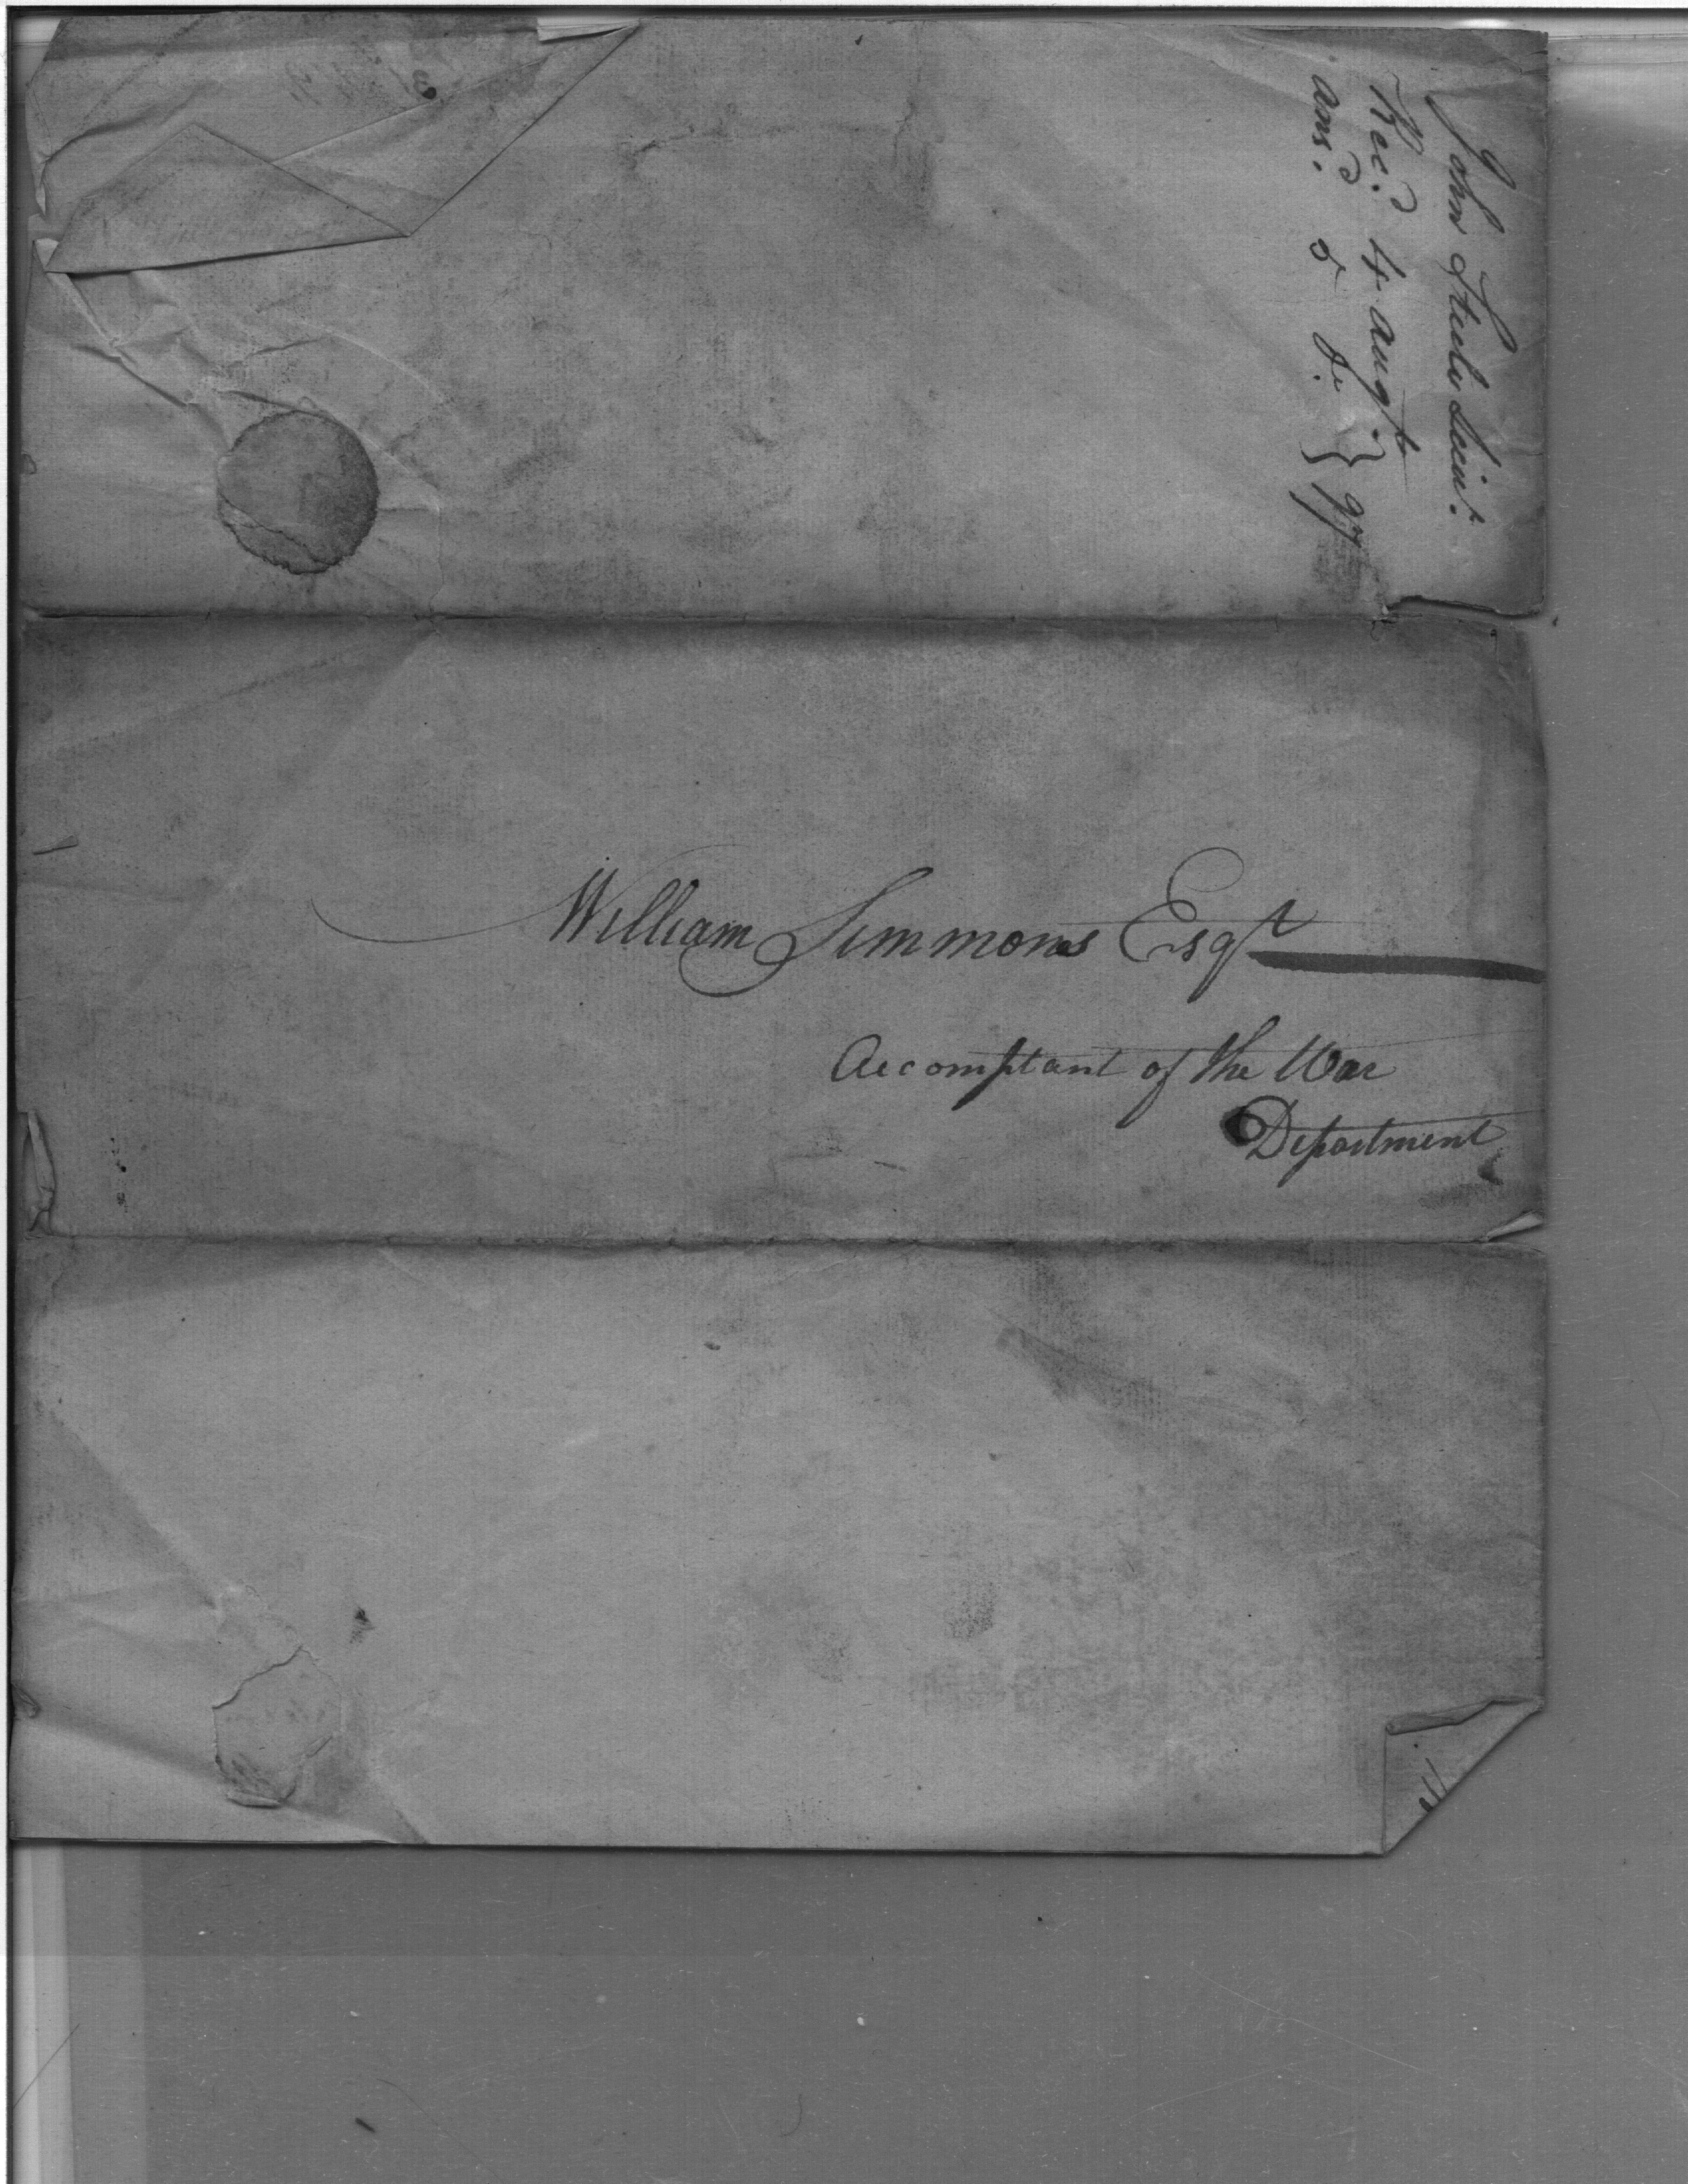 John Steele
Recd. 4 Augt.
ansd. 5 do. } 97
William Simmons Esqr
Accomptant of the War
Department